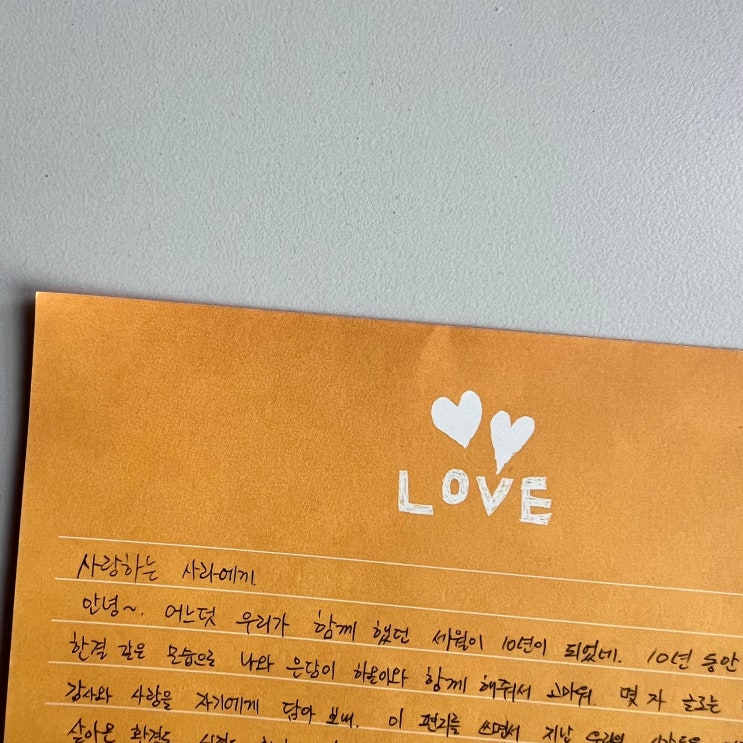 LOVE
사랑하는 사라에게.
안녕~. 어느덧 우리가 함께 했던 세월이 10년이 되었네. 10년 동안
한결 같은 모습으로 나와 은담이 하율이와 함께 해줘서 고마워. 몇 자 글로는
감사와 사랑을 자기에게 담아 보내. 이 편지를 쓰면서 지난
살아온 환경도